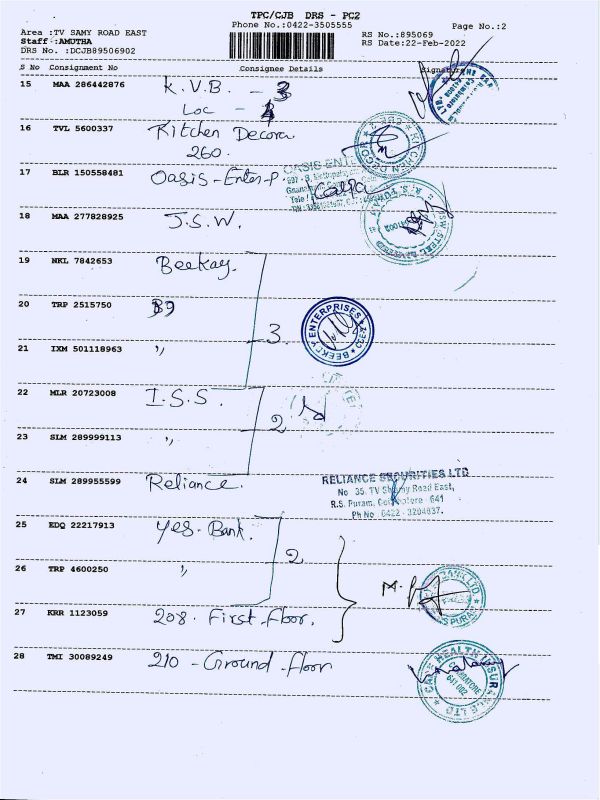 TPC/CJB DRS - PC2
Phone No.:0422-3505555
Page No.:2
Area :TV SAMY ROAD EAST
Staff :AMUTHA
DRS No. :DCJB89506902
RS No.:895069
RS Date:22-Feb-2022
S No Consignment No Consignee Details Signature
15 MAA 286442876 K.V.B. - 3
Loc - 1
16 TVL 5600337 Kitchen Decora
260.
17 BLR 150558481 Oasis - Enter-P
OASIS ENTE
18 MAA 277828925 J.S.W.
19 NKL 7842653 Beekay.
20 TRP 2515750 "
3.
BEEKEY ENTERPRISES
21 IXM 501118963 "
22 MLR 20723008 I.S.S.
2
23 SLM 289999113 "
24 SLM 289955599 Reliance.
RELIANCE SECURITIES LTD
No 35, TV Swamy Road East,
R.S. Puram, Coimbatore - 641
Ph No 0422 - 3204637.
25 EDQ 22217913 Yes - Bank.
2
26 TRP 4600250 "
27 KRR 1123059 208. First-floor.
28 TMI 30089249 210 - Ground-floor
HEALTH INSURANCE LTD
COIMBATORE
641 002